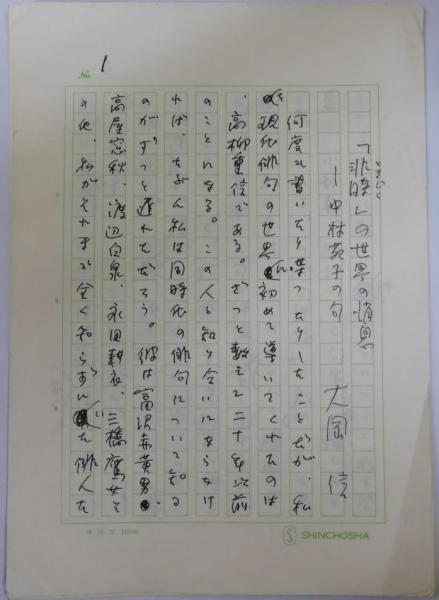 No. 1
「非時」の世界の消息
ときじく
―中村苑子の句
大岡 信
何度も書いたり喋つたりしたことだが、私
を現代俳句の世界に初めて導いてくれたのは
、高柳重信である。ざつと数えて二十年以前
のことになる。この人と知り合いにならなけ
れば、たぶん私は同時代の俳句について知る
のがずつと遅れただろう。彼は富沢赤黄男、
高屋窓秋、渡辺白泉、永田耕衣、三橋鷹女そ
の他、私がそれまで全く知らずにいた俳人た
SHINCHOSHA